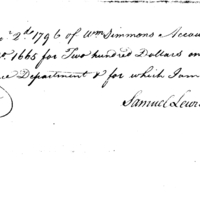 2d 1796 of Wm Simmons Accou
1665 for Two hundred Dollars on
Department & for which I am
Samuel Lewis